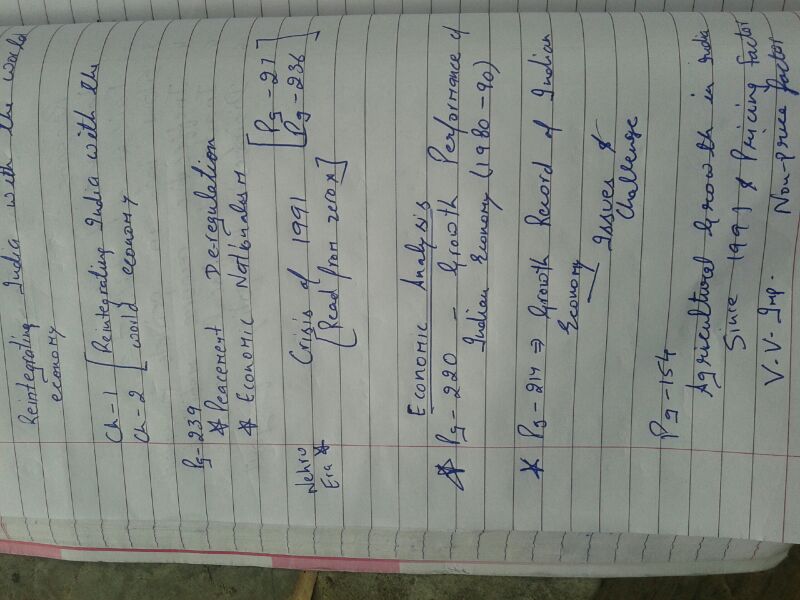 Reintegrating India with the world
economy
Ch-1 [Reintegrating India with the
Ch-2 [world economy
Pg-239
* Peacement De-regulation
* Economic Nationalism
Nehru Era * Crisis of 1991 [Pg-27 Pg-236]
[Read from xerox]
Economic Analysis
* Pg-220 - Growth Performance of
Indian Economy (1980-90)
* Pg-214 ⇒ Growth Record of Indian
Economy
Issues &
Challenge
Pg-154
Agricultural Growth in India
Since 1991 & Pricing factor
V.V. Imp. Non-price factor